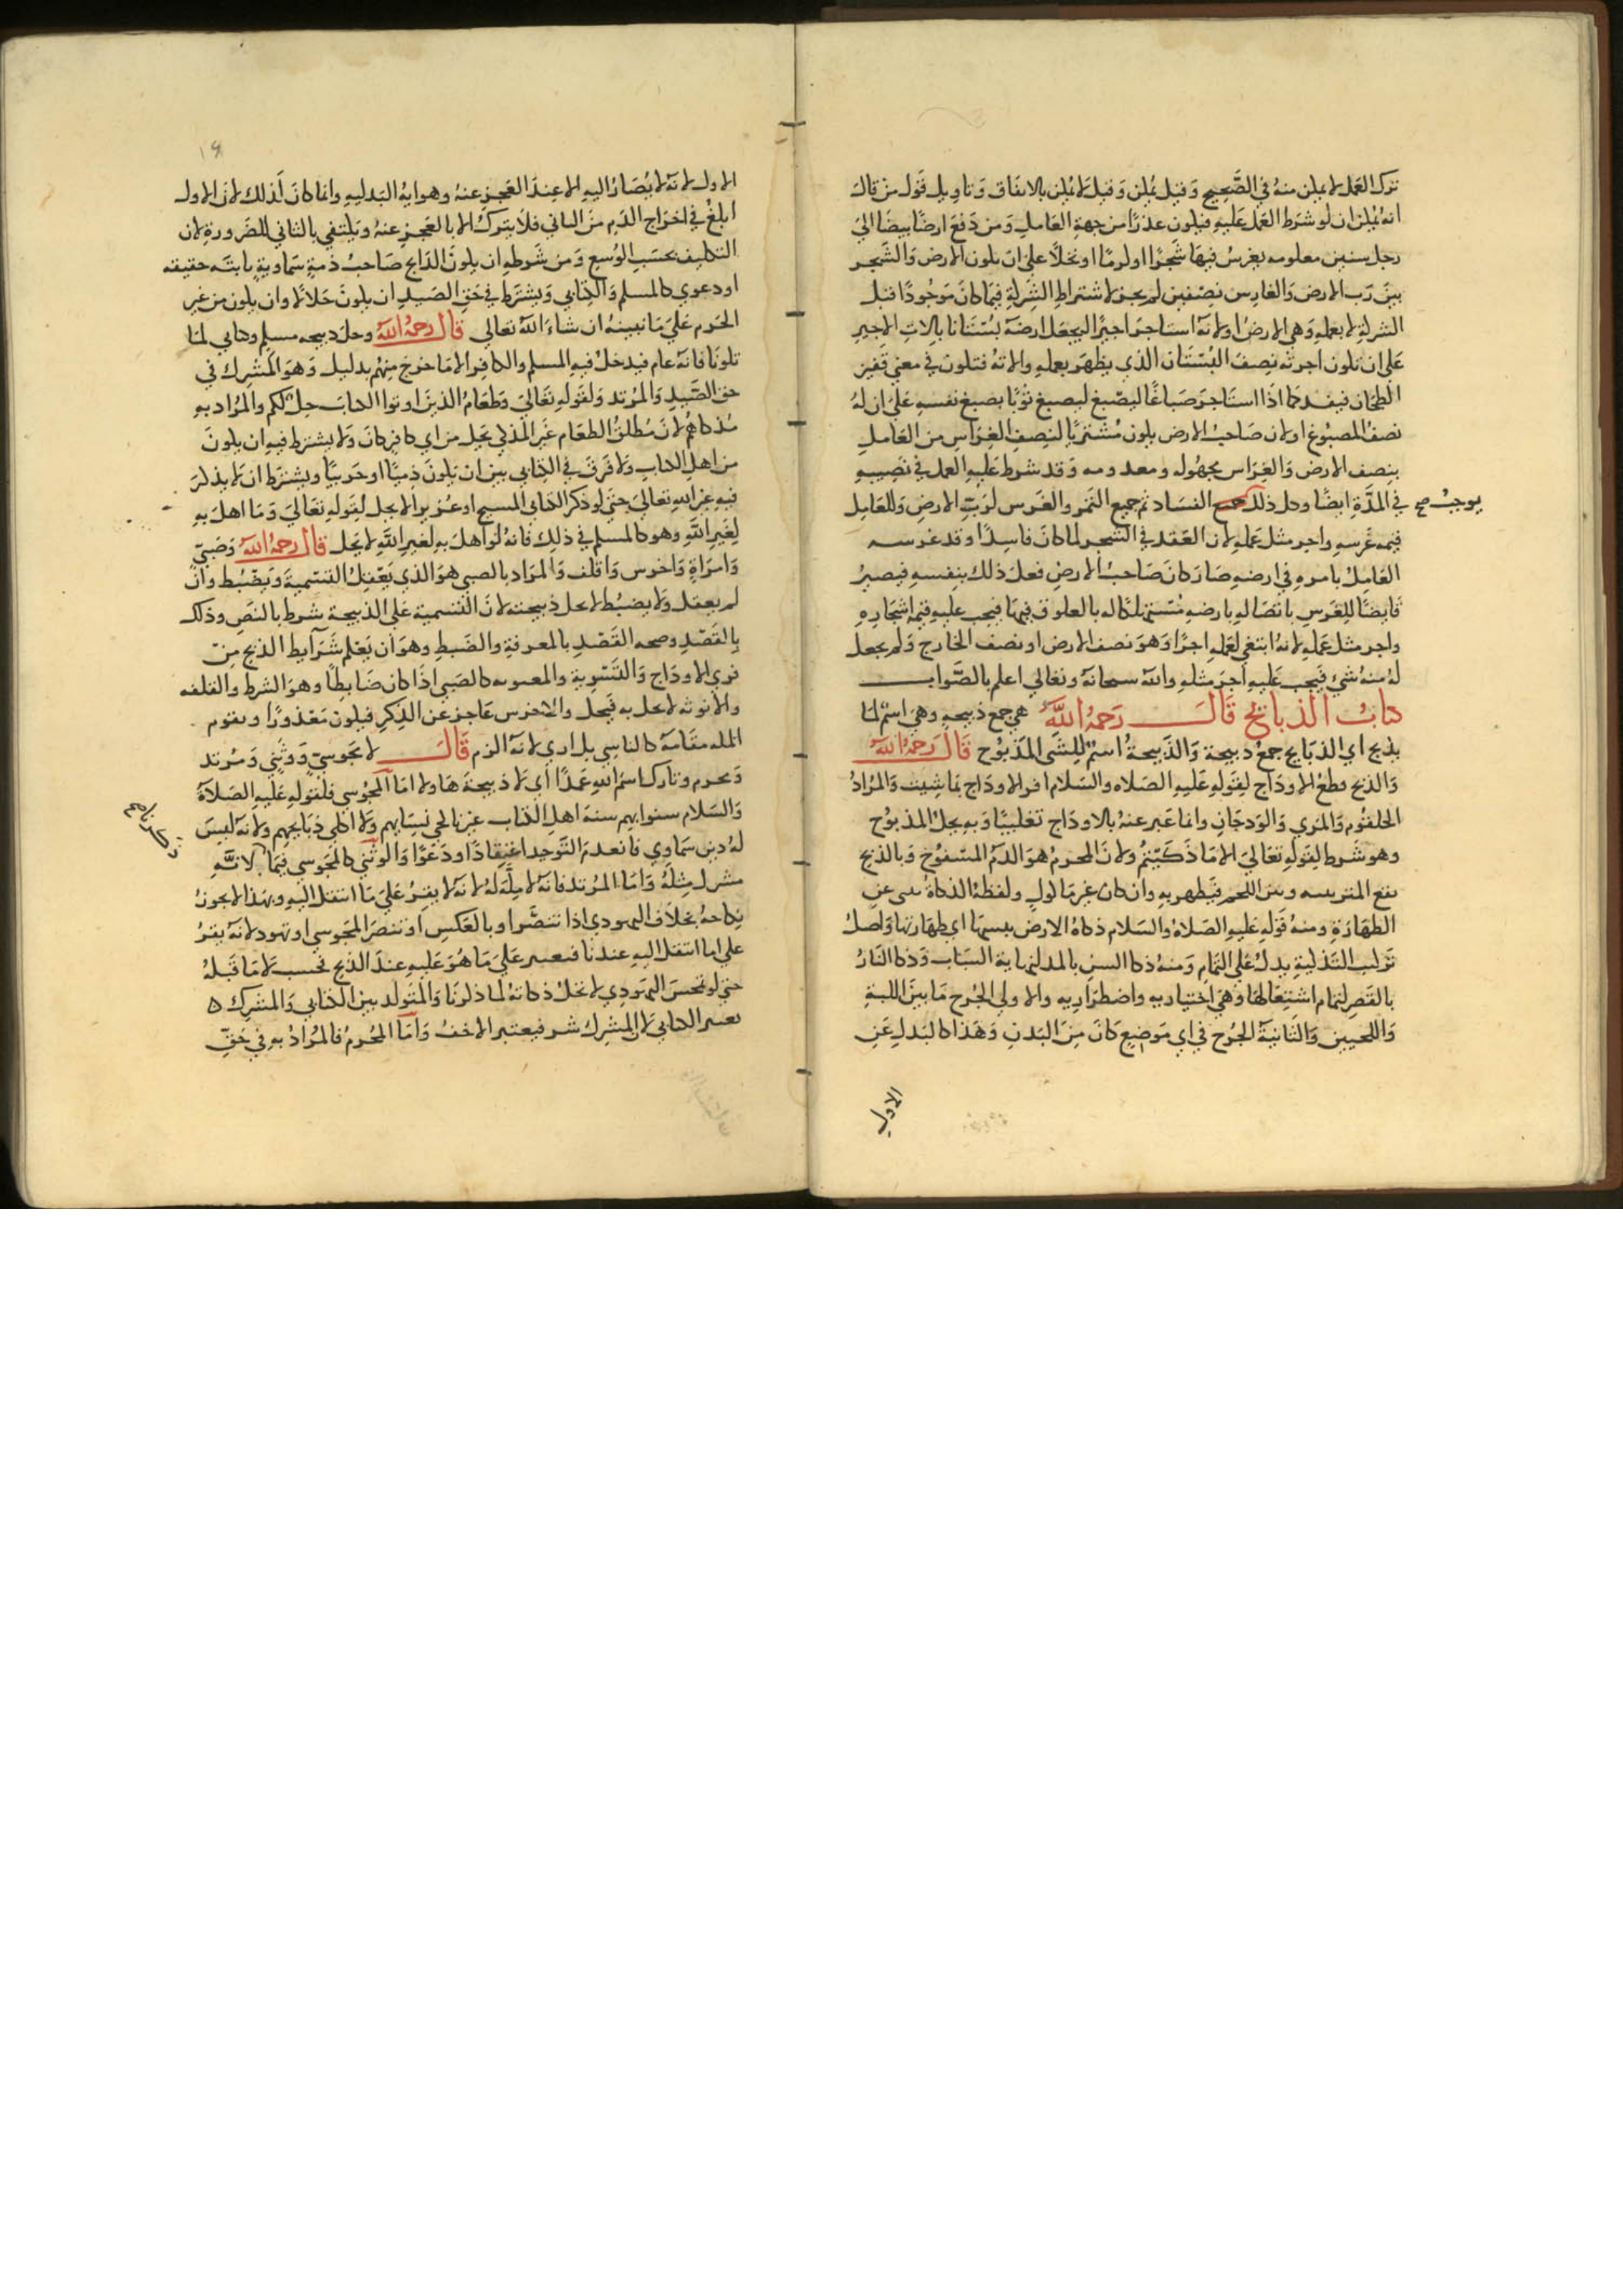 ترك العمل لا يمكن منه في الصحيح وقيل يمكن وقيل لا يمكن بالاتفاق وتاويل قول من قال
انه يمكن ان لو شرط العمل عليه فيكون عذرا من جهة العامل ومن دفع ارضا بيضا الي
رجل سنين معلومه يغرس فيها شجرا او كرما او نخلا علي ان تكون الارض والشجر
بين رب الارض والغارس نصفين لم يجز لاشتراط الشركة فيما كان موجودا قبل
الشركة لا بعمله وهي الارض او لانه استاجر اجيرا ليجعل ارضه بستانا بالات الاجير
علي ان تكون اجرته نصف البستان الذي يظهر بعمله والاته فتكون في معني قفيز
الطحان فيفسد كما اذا استاجر صباغا ليصبغ ثوبا بصبغ نفسه علي ان له
نصف المصبوغ او لان صاحب الارض يكون مشتريا لنصف الغراس من العامل
بنصف الارض والغراس مجهوله ومعدومه وقد شرط عليه العمل في نصيبه
في المدة ايضا وكل ذلك الفساد ثم جميع الثمر والغرس لرب الارض وللعامل
يوجب صح
قيمه غرسه واجر مثل عمله لان العقد في الشجر لما كان فاسدا وقد غرسه
العامل بامره في ارضه صار كان صاحب الارض فعل ذلك بنفسه فيصير
قابضا للغرس باتصاله بارضه مستهلكا له بالعلوق فيها فيجب عليه قيمه اشجاره
واجر مثل عمله لانه ابتغي لعمله اجرا وهو نصف الارض او نصف الخارج ولم يحصل
له منه شي فيجب عليه اجر مثله والله سبحانه وتعالي اعلم بالصواب
كتاب الذبايح قال رحمه الله هي جمع ذبيحه وهي اسم لما
يذبح اي الذبايح جمع ذبيحة والذبيحة اسم للشي المذبوح قال رحمه الله
والذبح قطع الاوداج لقوله عليه الصلاه والسلام افر الاوداج بما شيت والمراد
الحلقوم والمري والودجان وانما عبر عنه بالاوداج تغليبا وبه يحل المذبوح
وهو شرط لقوله تعالي الا ما ذكيتم ولان المحرم هو الدم المسفوح وبالذبح
يقع التمييز بينه وبين اللحم فيطهر به وان كان غير ماكول ولفظة الذكاة تنبي عن
الطهارة ومنه قوله عليه الصلاة والسلام ذكاة الارض يبسها اي طهارتها واصل
تركيب التذكية يدل علي التمام ومنه ذكا السن بالمد لنهاية الشباب وذكا النار
بالقصر لتمام اشتعالها وهي اختياريه واضطراريه والاولي الجرح ما بين اللبة
واللحيين والثانية الجرح في اي موضع كان من البدن وهذا كالبدل عن
الاول
١٩
الاول لانه لا يصار اليه الا عند العجز عنه وهو اية البدليه وانما كان كذلك لان الاول
ابلغ في اخراج الدم من الثاني فلا يترك الا بالعجز عنه ويكتفي بالثاني للضرورة لان
التكليف بحسب الوسع ومن شرطه ان يكون الذابح صاحب ذمة سماوية حقيقه
او دعوي كالمسلم والكتابي ويشترط في حق الصيد ان يكون حلالا وان يكون من غير
الحرم علي ما نبينه ان شاء الله تعالي قال رحمه الله وحل ذبيحه مسلم وكتابي لما
تلونا فانه عام فيدخل فيه المسلم والكافر الا ما خرج منهم بدليل وهو المشرك في
حق الصيد والمرتد ولقوله تعالي وطعام الذين اوتوا الكتاب حل لكم والمراد به
مذكاهم لان مطلق الطعام غير المذكي يحل من اي كافر كان ولا يشترط فيه ان يكون
من اهل الكتاب ولا فرق في الكتابي بين ان يكون ذميا او حربيا ويشترط ان لا يذكر
فيه غير الله تعالي حتي لو ذكر الكتابي المسيح او عزيرا لا يحل لقوله تعالي وما اهل به
لغير الله وهو كالمسلم في ذلك فانه لو اهل به لغير الله لا يحل قال رحمه الله وصبي
وامراة واخرس واقلف والمراد بالصبي هو الذي يعقل التسمية ويضبط وان
لم يعقل ولا يضبط لا تحل ذبيحته لان التسمية علي الذبيحة شرط بالنص وذلك
بالقصد وصحه القصد بالمعرفة والضبط وهو ان يعلم شرايط الذبح من
فري الاوداج والتسوية والمعتوه كالصبي اذا كان ضابطا وهو الشرط والقلفه
والانوثه لا تخل به فيحل والاخرس عاجز عن الذكر فيكون معذورا وتقوم
المله مقامه كالناسي بل اولي لانه الزم قال لا مجوسي ووثني ومرتد
ومحرم وتارك اسم الله عمدا اي لا ذبيحة هاولا اما المجوسي فلقوله عليه الصلاة
والسلام سنوا بهم سنة اهل الكتاب غير ناكحي نسايهم ولا اكلي ذبايحهم ولانه ليس
له دين سماوي فانعدم التوحيد اعتقادا ودعوا والوثني كالمجوسي فيما لانه
مشرك مثله واما المرتد فانه لا ملة له لانه لا يقر علي ما انتقل اليه ولهذا لا يجوز
نكاحه بخلاف اليهودي اذا تنصر او بالعكس او تنصر المجوسي او تهود لانه يقر
علي ما انتقل اليه عندنا فيعتبر علي ما هو عليه عند الذبح فحسب لا ما قبله
حتي لو تمجس اليهودي لا تحل ذكاته لما ذكرنا والمتولد بين الكتابي والمشرك
يعتبر الكتابي لان المشرك شر فيعتبر الاخف واما المحرم فالمراد به في حق
ذكرنا صح